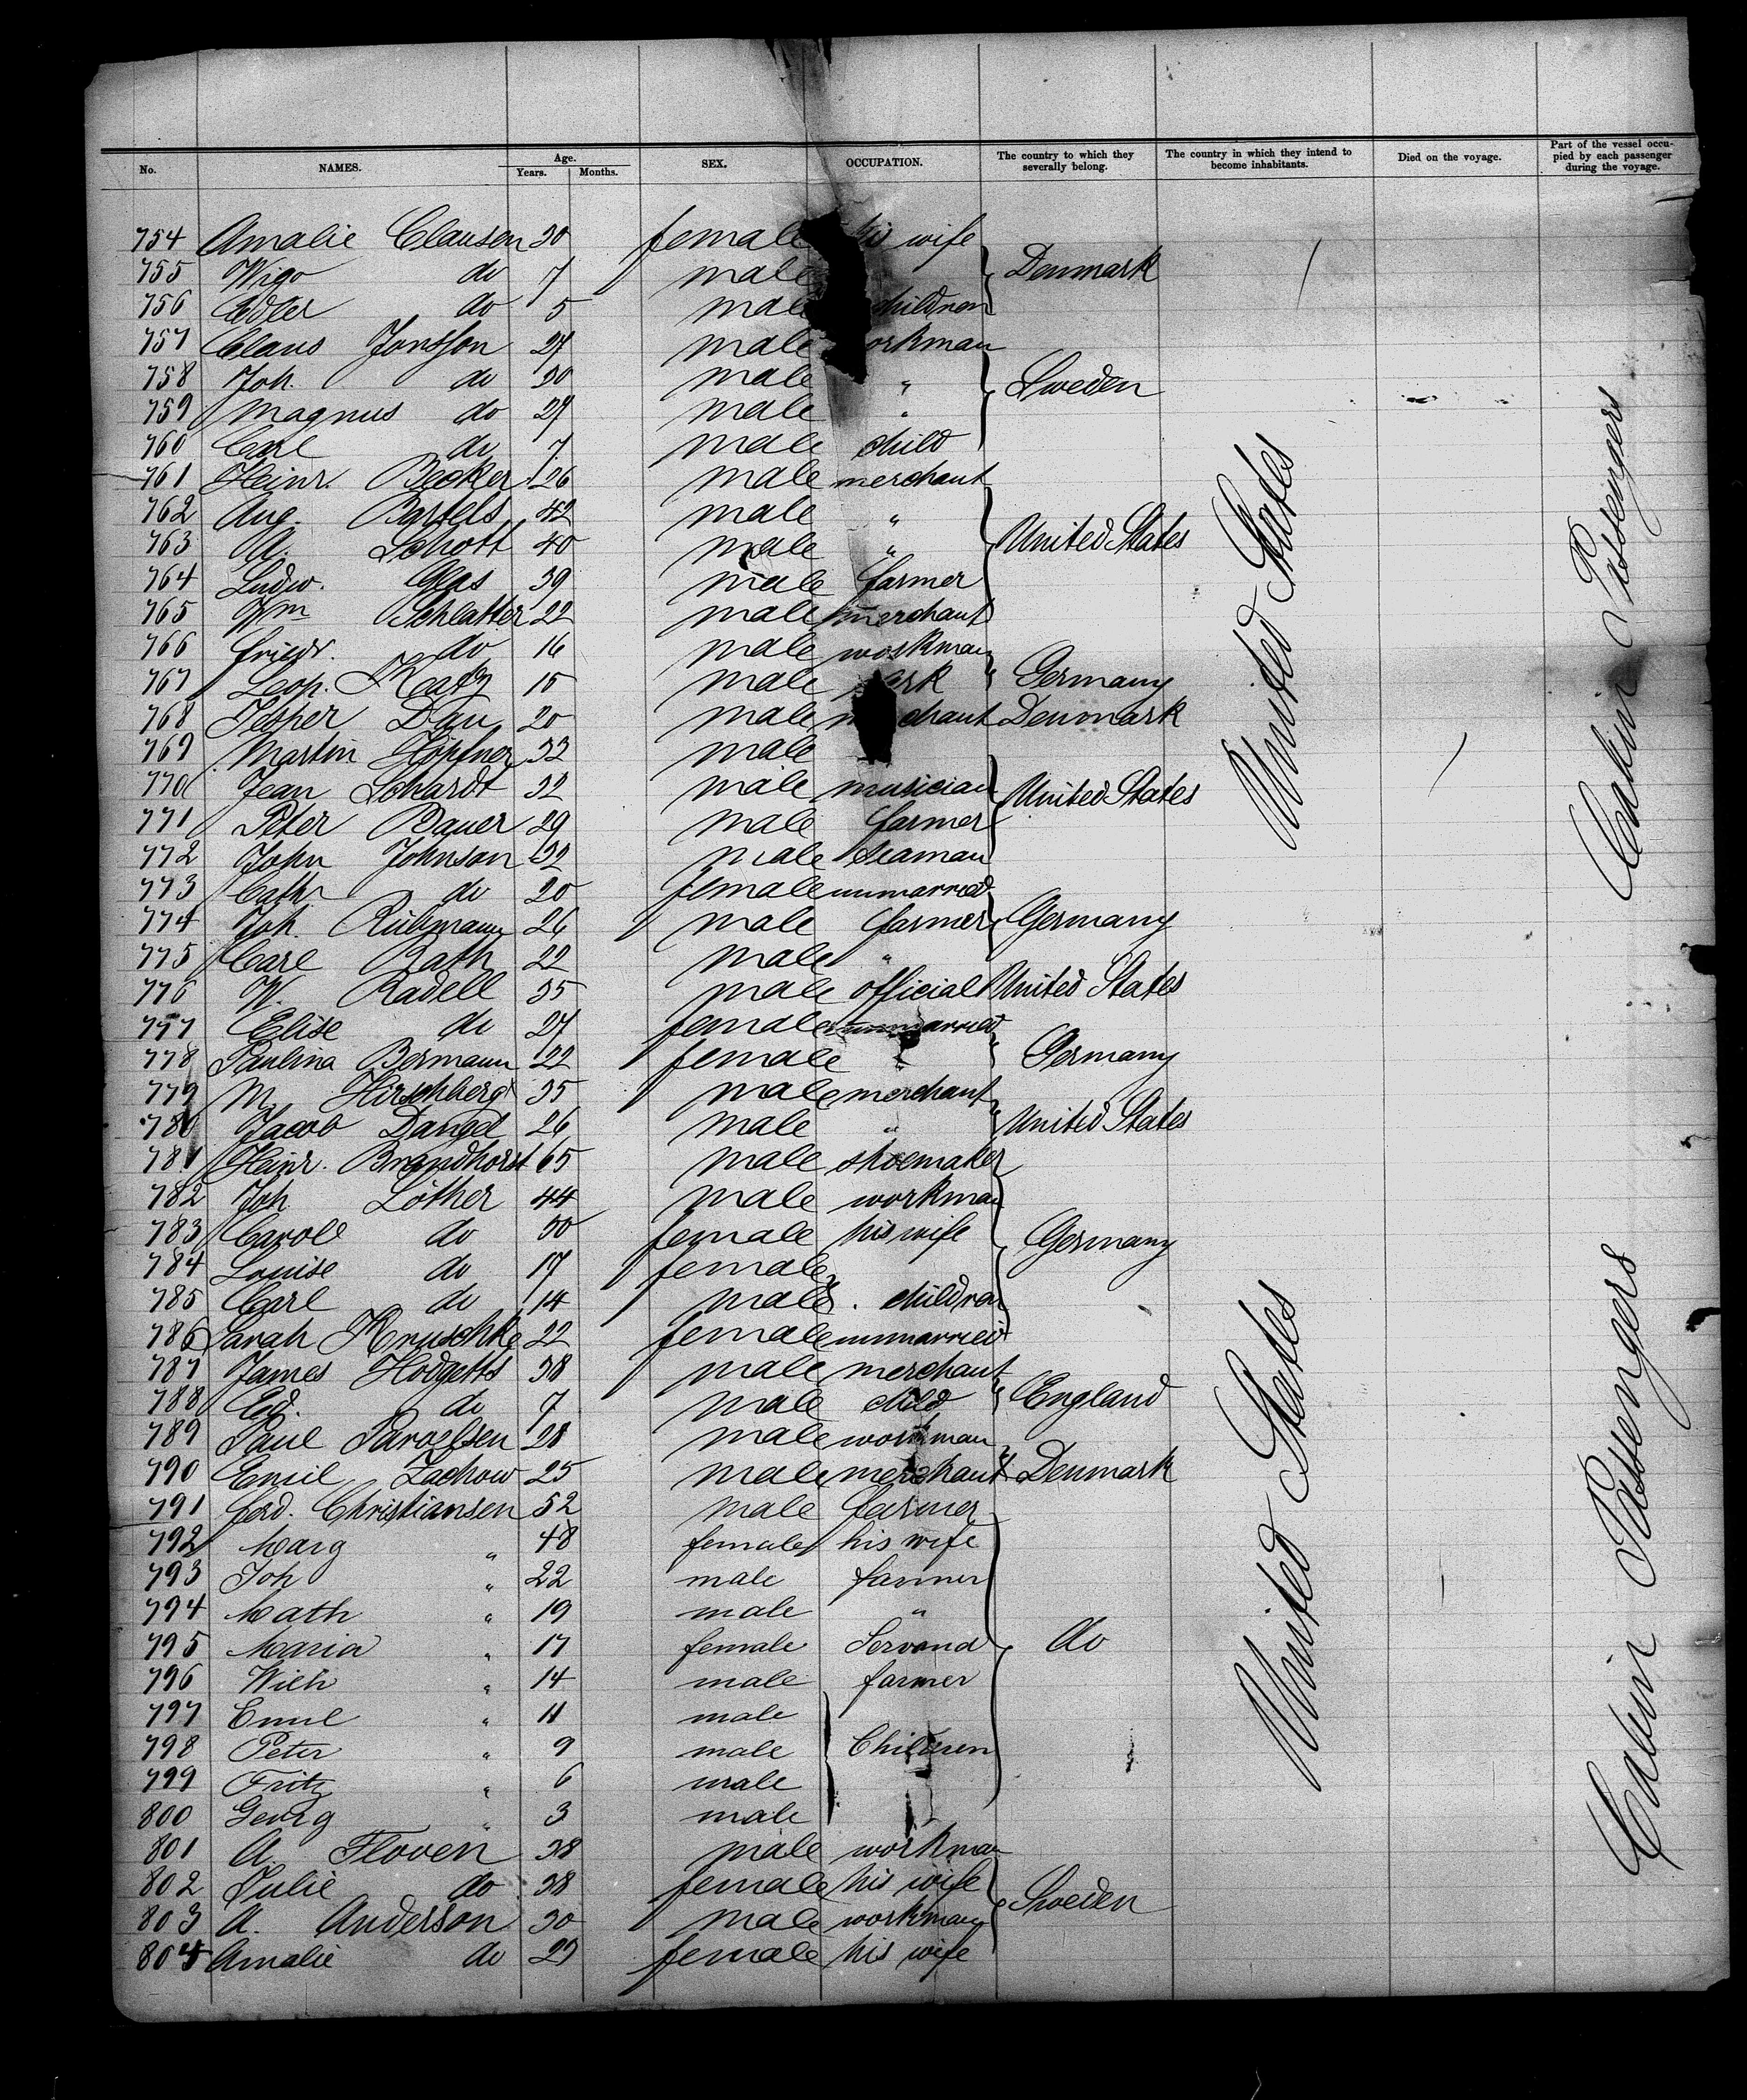 No. NAMES. Age. Years. Months. SEX. OCCUPATION. The country to which they severally belong. The country in which they intend to become inhabitants. Died on the voyage. Part of the vessel occupied by each passenger during the voyage.
754 Amalie Clausen 30 female his wife
755 Wigo do 7 male Denmark
756 Edler do 5 male children
757 Claus Jonsson 27 male workman
758 Joh. do 30 male " Sweden
759 Magnus do 27 male "
760 Carl do 7 male child
761 Heinr. Becker 26 male merchant
762 Aug. Bartels 42 male "
763 A. Schott 40 male " United States
764 Ludw. Glas 39 male farmer
765 Wm Schlatter 22 male merchant
766 Friedr. do 16 male workman
767 Leop. Katz 15 male Germany
768 Jesper Dau 20 male merchant Denmark
769 Martin Höpfner 33 male
770 Jean Schardt 32 male musician United States
771 Peter Bauer 29 male farmer
772 John Johnson 32 male seaman
773 Cath do 20 female unmarried
774 Joh. Rühmann 26 male farmer Germany
775 Carl Rath 22 male "
776 W. Radell 35 male official United States
777 Elise do 27 female unmarried
778 Paulina Bermann 22 female " Germany
779 M. Hirschberg 35 male merchant
780 Jacob Dangel 26 male " United States
781 Heinr. Brandhorst 65 male shoemaker
782 Joh Löther 44 male workman
783 Carole do 50 female his wife Germany
784 Louise do 17 female
785 Carl do 14 male children
786 Sarah Kruschke 22 female unmarried
787 James Hodgetts 38 male merchant
788 Ed. do 7 male child England
789 Paul 28 male workman
790 Emil Zachow 25 male merchant Denmark
791 Ferd. Christiansen 52 male farmer
792 Marg " 48 female his wife
793 Joh " 22 male farmer
794 Math " 19 male "
795 Maria " 17 female Servand do
796 Wilh " 14 male farmer
797 Emil " 11 male
798 Peter " 9 male Children
799 Fritz " 6 male
800 Georg " 3 male
801 A. Floven 38 male workman
802 Julie do 38 female his wife Sweden
803 A. Anderson 30 male workman
804 Amalie do 29 female his wife
United States
United States
Cabin Passengers
Cabin Passengers